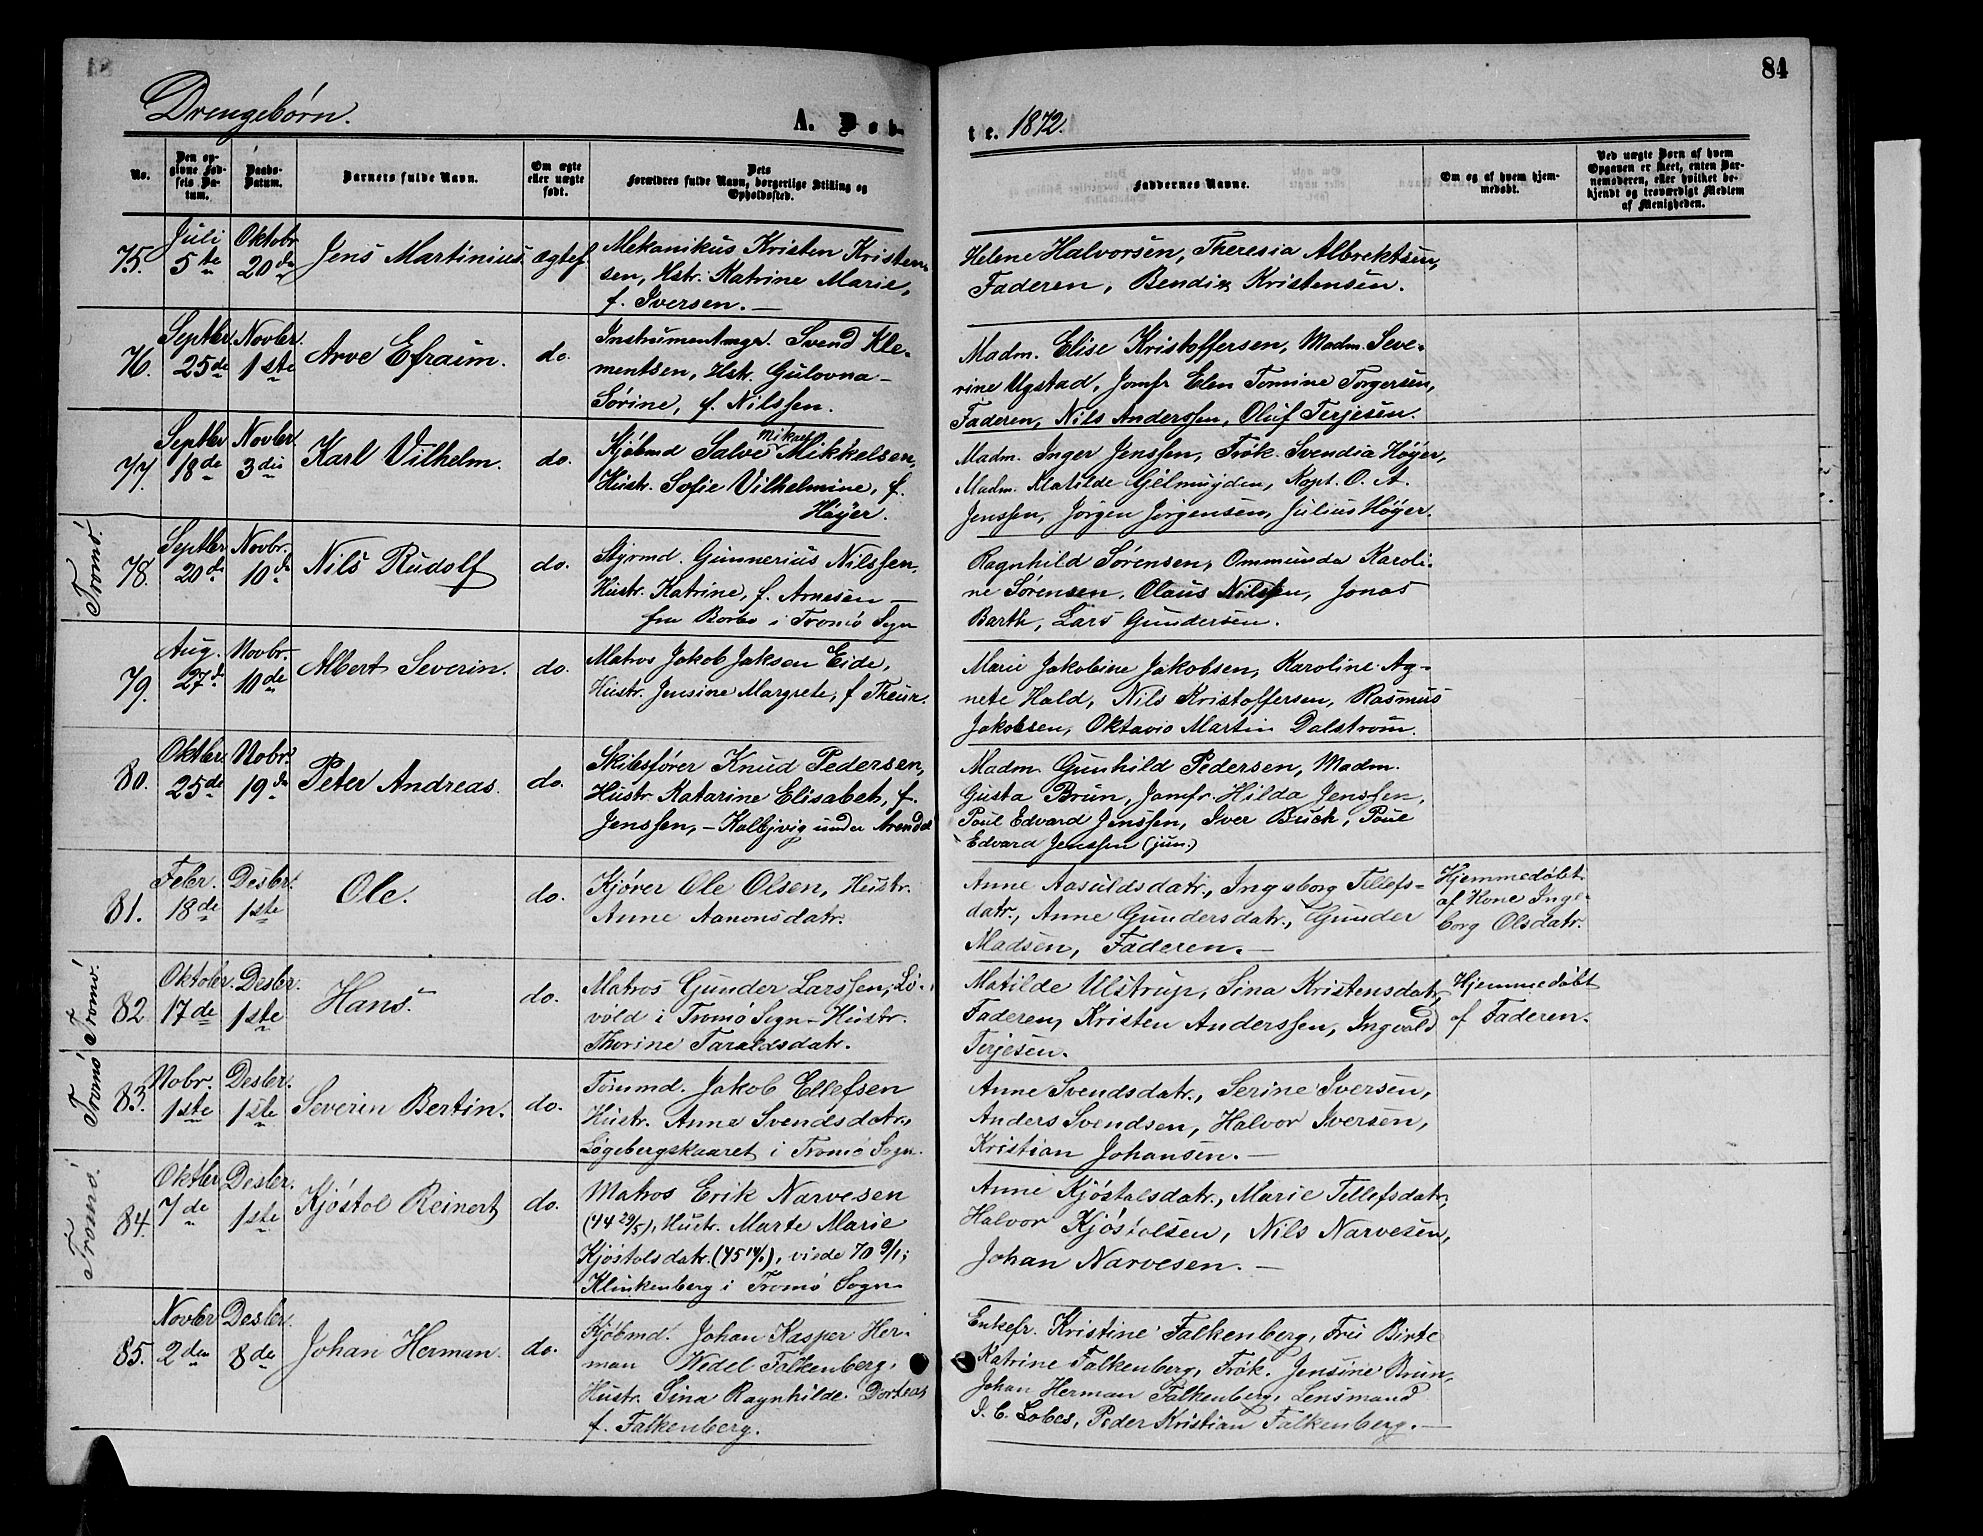 84
Drengebørn.
A. Døb-
te. 1872.
No.
Den op-
givne Fød-
sels Da-
tum.
Daabs-
Datum.
Barnets fulde Navn.
Om ægte
eller uægte
født.
Dets
Forældres fulde Navn, borgerlige Stilling og
Opholdssted.
Faddernes Navne.
Om og af hvem hjem-
medøbt.
Ved uægte Børn af hvem
Opgaven er skeet, enten Bar-
nemoderen, eller hvilket be-
kjendt og troværdigt Medlem
af Menigheden.
75.
Juli
5te
Oktobr
20de
Jens Martinius.
ægtef.
Mekanikus Kristen Kristen-
sen, Hstr. Katrine Marie,
f. Iversen. —
Helene Halvorsen, Theresia Albrektsen,
Faderen, Bendix Kristensen.
76.
Septbr.
25de
Novbr.
1ste
Arve Efraim.
do.
Instrumentmgr. Svend Kle-
mentsen, Hstr. Gulovna
Sørine, f. Nilssen.
Madm. Elise Kristoffersen, Madm. Seve-
rine Ugstad, Jomfr Elen Tomine Torgersen,
Faderen, Nils Anderssen, Oluf Terjesen.
77
Septbr
18de
Novbr.
3die
Karl Vilhelm.
do.
Kjøbmd Salve Mikael Mikkelsen,
Hustr. Sofie Vilhelmine, f.
Høyer.
Madm. Inger Jenssen, Frøk. Svendia Høyer,
Madm. Klatilde Gjelmuyden, Kapt. O. A.
Jenssen, Jørgen Jørgensen, Julius Høyer.
Tromø.
78.
Septbr
20de
Novbr.
10de
Nils Rudolf
do.
Styrmd. Gunnerius Nilssen,
Hustr. Katrine, f. Arnesen —
fra Borbo i Tromø Sogn
Ragnhild Sørensen, Ommunda Karoli-
ne Sørensen, Olaus Nilssen, Jonas
Barth, Lars Gundersen.
79.
Aug.
27de
Novbr.
10de
Albert Severin.
do.
Matros Jakob Jaksen Eide,
Hustr. Jensine Margrete, f Theur.
Marie Jakobine Jakobsen, Karoline Ag-
nete Hald, Nils Kristoffersen, Rasmus
Jakobsen, Oktavio Martin Dalstrøm.
80.
Oktbr.
25de
Nobr.
19de
Peter Andreas.
do.
Skibsfører Knud Pedersen,
Hustr. Katarine Elisabeth, f.
Jenssen, – Kolbjvig under Arendal
Madm. Gunhild Pedersen, Madm.
Gusta Brun, Jomfr. Hilda Jenssen,
Poul Edvard Jenssen, Iver Buch, Poul
Edvard Jenssen (jun.)
81.
Febr.
18de
Desbr.
1ste
Ole.
do.
Kjører Ole Olsen, Hustr.
Anne Aanonsdatr.
Anne Aasuldsdatr., Ingeborg Tellefs-
datr., Anne Gundersdatr., Gunder
Madsen, Faderen. —
Hjemmedøbt
af Kone Inge-
borg Olsdatr.
Tromø.
82
Oktobr.
17de
Desbr.
1ste
Hans.
do.
Matros Gunder Larssen, Lø-
vold i Tromø Sogn – Hustr.
Thorine Taraldsdatr.
Matilde Ulstrup, Sina Kristensdatr,
Faderen, Kristen Anderssen, Ingvald
Terjesen.
Hjemmedøbt
af Faderen.
Tromø
83.
Nobr.
1ste
Desbr.
1ste
Severin Bertin.
do.
Tømmd. Jakob Ellefsen
Hustr. Anne Svendsdatr.,
Løgebergskaaret i Tromø Sogn.
Anne Svendsdatr., Serine Iversen,
Anders Svendsen, Halvor Iversen,
Kristian Johansen. —
Tromø.
84.
Oktbr
7de
Desbr.
1ste
Kjøstol Reinert
do.
Matros Erik Narvesen
(44 29/5), Hustr. Marte Marie
Kjøstolsdatr. (45 14/), viede 70 9/1;
Klinkenberg i Tromø Sogn
Anne Kjøstolsdatr., Marie Tellefsdatr,
Halvor Kjøstolsen, Nils Narvesen,
Johan Narvesen. —
85.
Novbr
2den
Desbr.
8de
Johan Herman.
do.
Kjøbmd. Johan Kasper Her-
man Wedel Falkenberg,
Hustr. Sina Ragnhilde Dorteas
f. Falkenberg.
Enkefr. Kristine Falkenberg, Fru Birte
Katrine Falkenberg, Frøk. Jensine Brun,
Johan Herman Falkenberg, Lensmand
I. C. Lobes, Peder Kristian Falkenberg. —